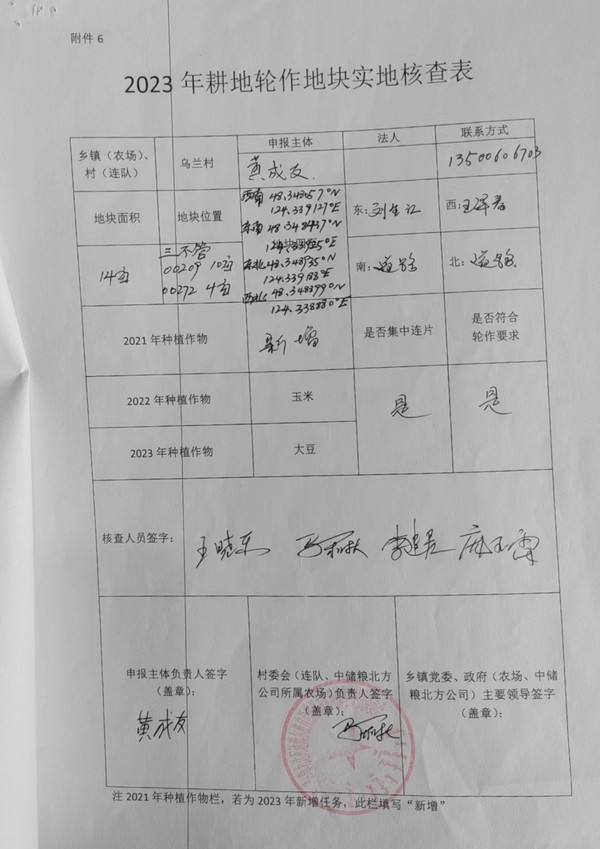 附件 6
2023 年耕地轮作地块实地核查表
乡镇（农场）、村（连队）
乌兰村
申报主体
黄成友
法人
联系方式
13500606703
地块面积
地块位置
西南 48.348057°N
124.339127°E
东南 48.348437°N
东北 48.348935°N
124.339188°E
西北 48.348399°N
124.338880°E
东：
西：
14亩
三不管
00209 10亩
00272 4亩
南：道路
北：道路
2021 年种植作物
新增
是否集中连片
是否符合轮作要求
2022 年种植作物
玉米
是
是
2023 年种植作物
大豆
核查人员签字：
王晓东
申报主体负责人签字
（盖章）：
黄成友
村委会（连队、中储粮北方公司所属农场）负责人签字
（盖章）：
乡镇党委、政府（农场、中储粮北方公司）主要领导签字
（盖章）：
注 2021 年种植作物栏，若为 2023 年新增任务，此栏填写“新增”